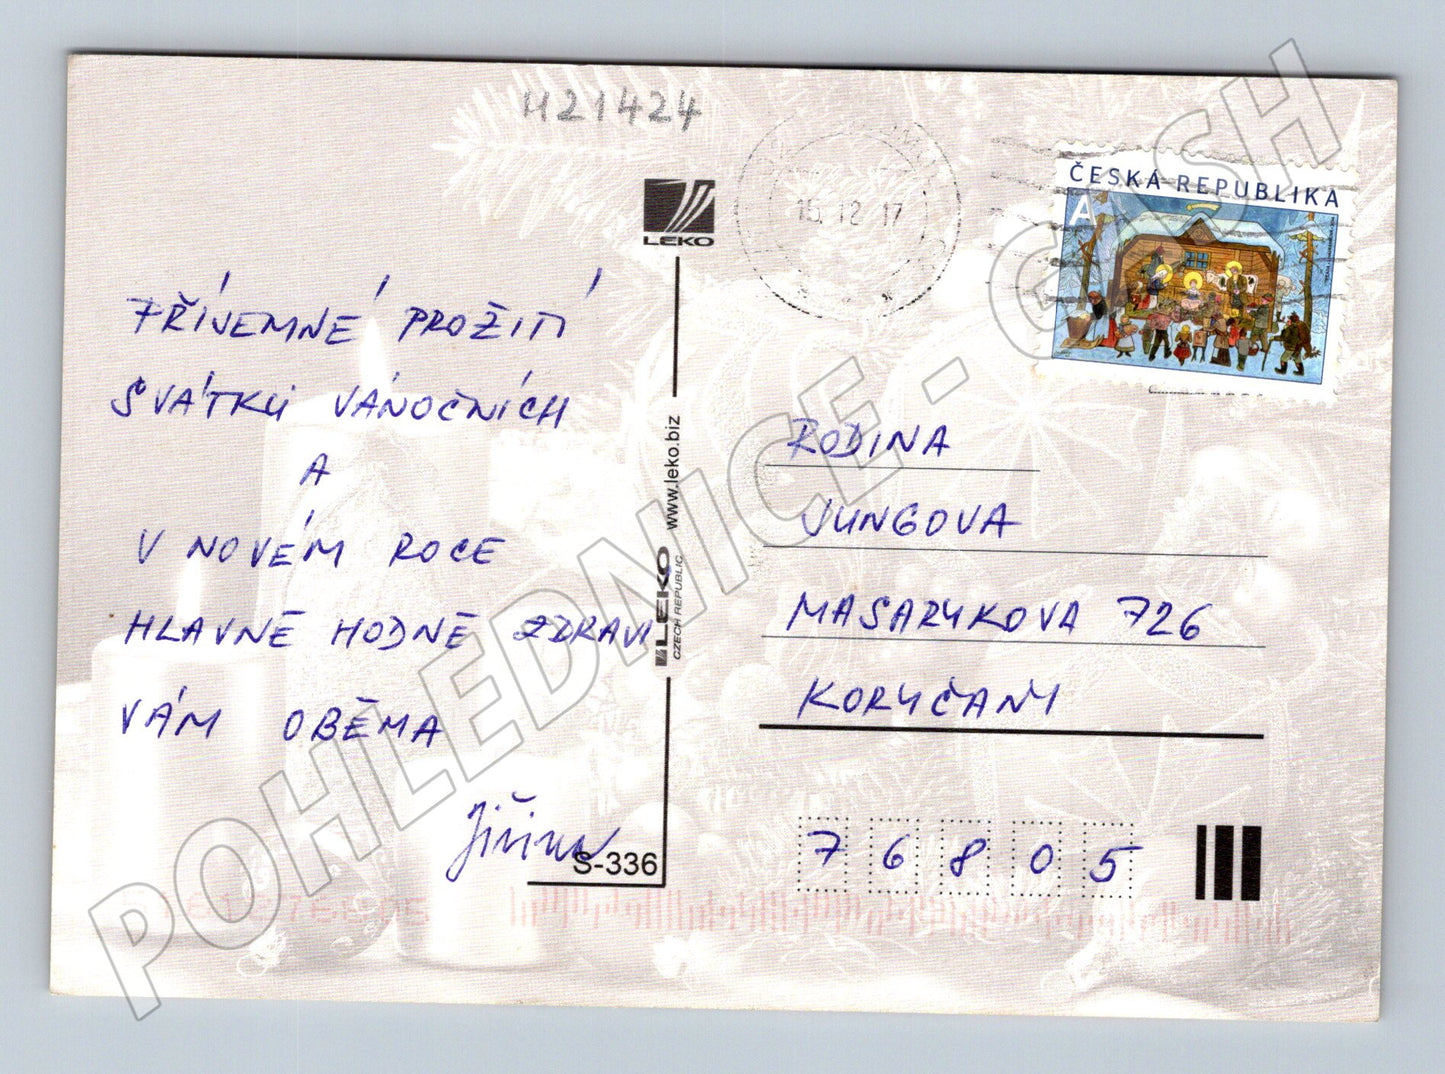 H21424
LEKO
15.12.17
ČESKÁ REPUBLIKA
A
PŘÍJEMNÉ PROŽITÍ
SVÁTKŮ VÁNOČNÍCH
A
V NOVÉM ROCE
HLAVNĚ HODNĚ ZDRAVÍ
VÁM OBĚMA
Jiřina
S-336
www.leko.biz
LEKO
CZECH REPUBLIC
RODINA
JUNGOVA
MASARYKOVA 726
KORYČANY
76805
POHLEDNICE - CASH